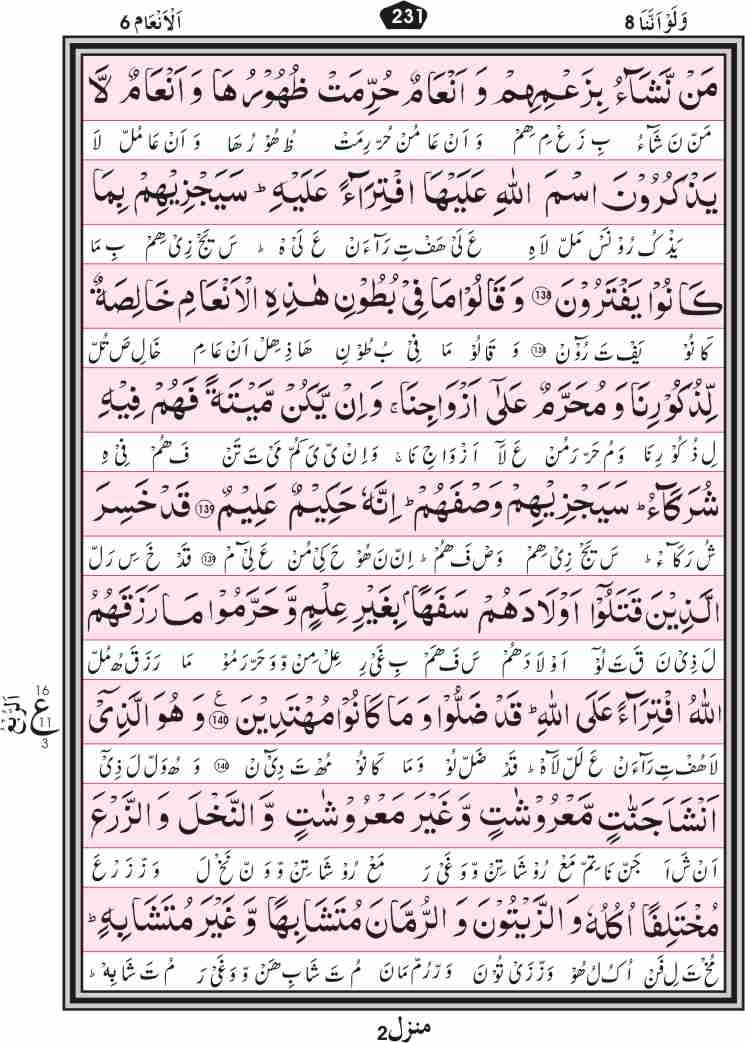 وَلَوْ اَنَّنَا 8
231
اَلْاَنْعَام 6
مَنْ نَّشَآءُ بِزَعْمِهِمْ وَ اَنْعَامٌ حُرِّمَتْ ظُهُوْرُهَا وَ اَنْعَامٌ لَّا
مَنّ نَ شَآءُ بِ زَ عْ مِ هِمْ وَ اَنْ عَا مُنْ حُرّ رِمَتْ ظُ هُوْ رُ هَا وَ اَنْ عَا مُلّ لَا
يَذْكُرُوْنَ اسْمَ اللّٰهِ عَلَيْهَا افْتِرَآءً عَلَيْهِ ؕ سَيَجْزِيْهِمْ بِمَا
يَذْكُ رُوْ نَسْ مَلّ لَاهِ عَ لَىْ هَفْ تِ رَآءَنْ عَ لَىْ هْ ؕ سَ يَجْ زِىْ هِمْ بِ مَا
كَانُوْا يَفْتَرُوْنَ 138 وَ قَالُوْا مَا فِيْ بُطُوْنِ هٰذِهِ الْاَنْعَامِ خَالِصَةٌ
كَا نُوْ يَفْ تَ رُوْٓنْ 138 وَ قَا لُوْ مَا فِىْ بُ طُوْ نِ هَا ذِ هِلْ اَنْ عَا مِ خَالِ صَ تُلّ
لِّذُكُوْرِنَا وَ مُحَرَّمٌ عَلٰٓى اَزْوَاجِنَا ۚ وَ اِنْ يَّكُنْ مَّيْتَةً فَهُمْ فِيْهِ
لِ ذُ كُوْ رِنَا وَ مُ حَرّ رَمُنْ عَ لَآ اَزْ وَا جِ نَا ۚ وَ اِنْ ىّ ىَ كُمّ مَىْ تَ تَنْ فَ هُمْ فِىْ هِ
شُرَكَآءُ ؕ سَيَجْزِيْهِمْ وَصْفَهُمْ ؕ اِنَّهٗ حَكِيْمٌ عَلِيْمٌ 139 قَدْ خَسِرَ
شُ رَكَآ ءْ ؕ سَ يَجْ زِىْ هِمْ وَصْ فَ هُمْ ؕ اِنّ نَ هُوْ حَ كِىْ مُنْ عَ لِىْٓ مْ 139 قَدْ خَ سِ رَلّ
الَّذِيْنَ قَتَلُوْٓا اَوْلَادَهُمْ سَفَهًۢا بِغَيْرِ عِلْمٍ وَّ حَرَّمُوْا مَا رَزَقَهُمُ
لَ ذِىْ نَ قَ تَ لُوْٓ اَوْ لَا دَهُمْ سَ فَ هَمْ بِ غَىْ رِ عِلْ مِنْ وّ وَ حَرّ رَمُوْ مَا رَ زَ قَ هُ مُلّ
اللّٰهُ افْتِرَآءً عَلَى اللّٰهِ ؕ قَدْ ضَلُّوْا وَ مَا كَانُوْا مُهْتَدِيْنَ 140 ع وَ هُوَ الَّذِيْٓ
لَا هُفْ تِ رَآءَنْ عَ لَلّ لَآهْ ؕ قَدْ ضَلّ لُوْ وَ مَا كَا نُوْ مُهْ تَ دِىْٓ نْ 140 وَ هُوَلّ لَ ذِىْٓ
16
ع
11
3
اَلرُّبُع
اَنْشَاَ جَنّٰتٍ مَّعْرُوْشٰتٍ وَّ غَيْرَ مَعْرُوْشٰتٍ وَّ النَّخْلَ وَ الزَّرْعَ
اَنْ شَ اَ جَنّ نَا تِمّ مَعْ رُوْ شَا تِنْ وّ وَ غَىْ رَ مَعْ رُوْ شَا تِنْ وّ وَ نّ نَخْ لَ وَ زّ زَ رْ عَ
مُخْتَلِفًا اُكُلُهٗ وَ الزَّيْتُوْنَ وَ الرُّمَّانَ مُتَشَابِهًا وَّ غَيْرَ مُتَشَابِهٍ ؕ
مُخْ تَ لِ فَنْ اُ كُ لُ هُوْ وَ زّ زَىْ تُوْ نَ وَ رّ رُمّ مَانَ مُ تَ شَا بِ هَنْ وّ وَ غَىْ رَ مُ تَ شَا بِهْ ؕ
منزل2